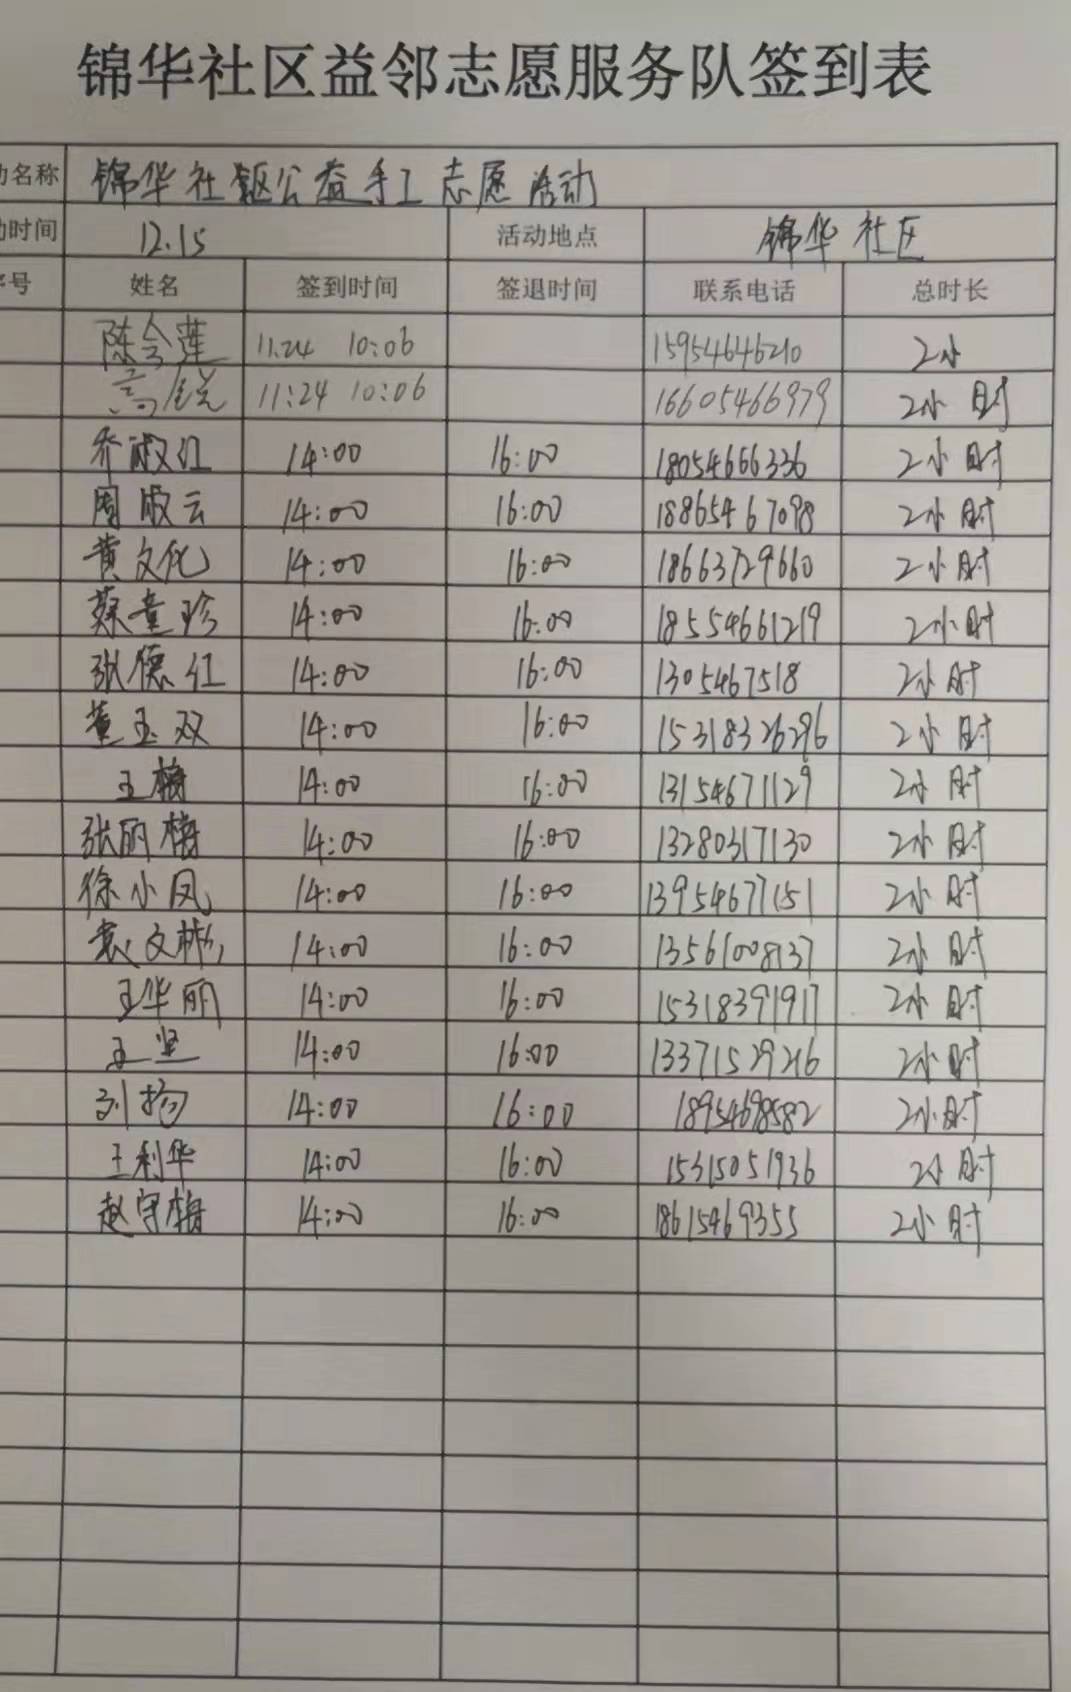 锦华社区益邻志愿服务队签到表
动名称 锦华社区公益手工志愿活动
动时间 12.15 活动地点 锦华社区
序号 姓名 签到时间 签退时间 联系电话 总时长
陈会莲 11.24 10:06 15954646210 2小
高锐 11:24 10:06 16605466979 2小时
乔淑红 14:00 16:00 18054666336 2小时
周淑云 14:00 16:00 18865467098 2小时
黄文化 14:00 16:00 18663729660 2小时
蔡童珍 14:00 16:00 18554661219 2小时
张德红 14:00 16:00 1305467518 2小时
董玉双 14:00 16:00 15318326296 2小时
王梅 14:00 16:00 13154671129 2小时
张丽梅 14:00 16:00 13280317130 2小时
徐小凤 14:00 16:00 13954677151 2小时
袁文彬 14:00 16:00 13561008137 2小时
王华丽 14:00 16:00 15318391917 2小时
王坚 14:00 16:00 13371529216 2小时
刘扬 14:00 16:00 18954698582 2小时
王利华 14:00 16:00 15315051936 2小时
赵守梅 14:00 16:00 18615469355 2小时